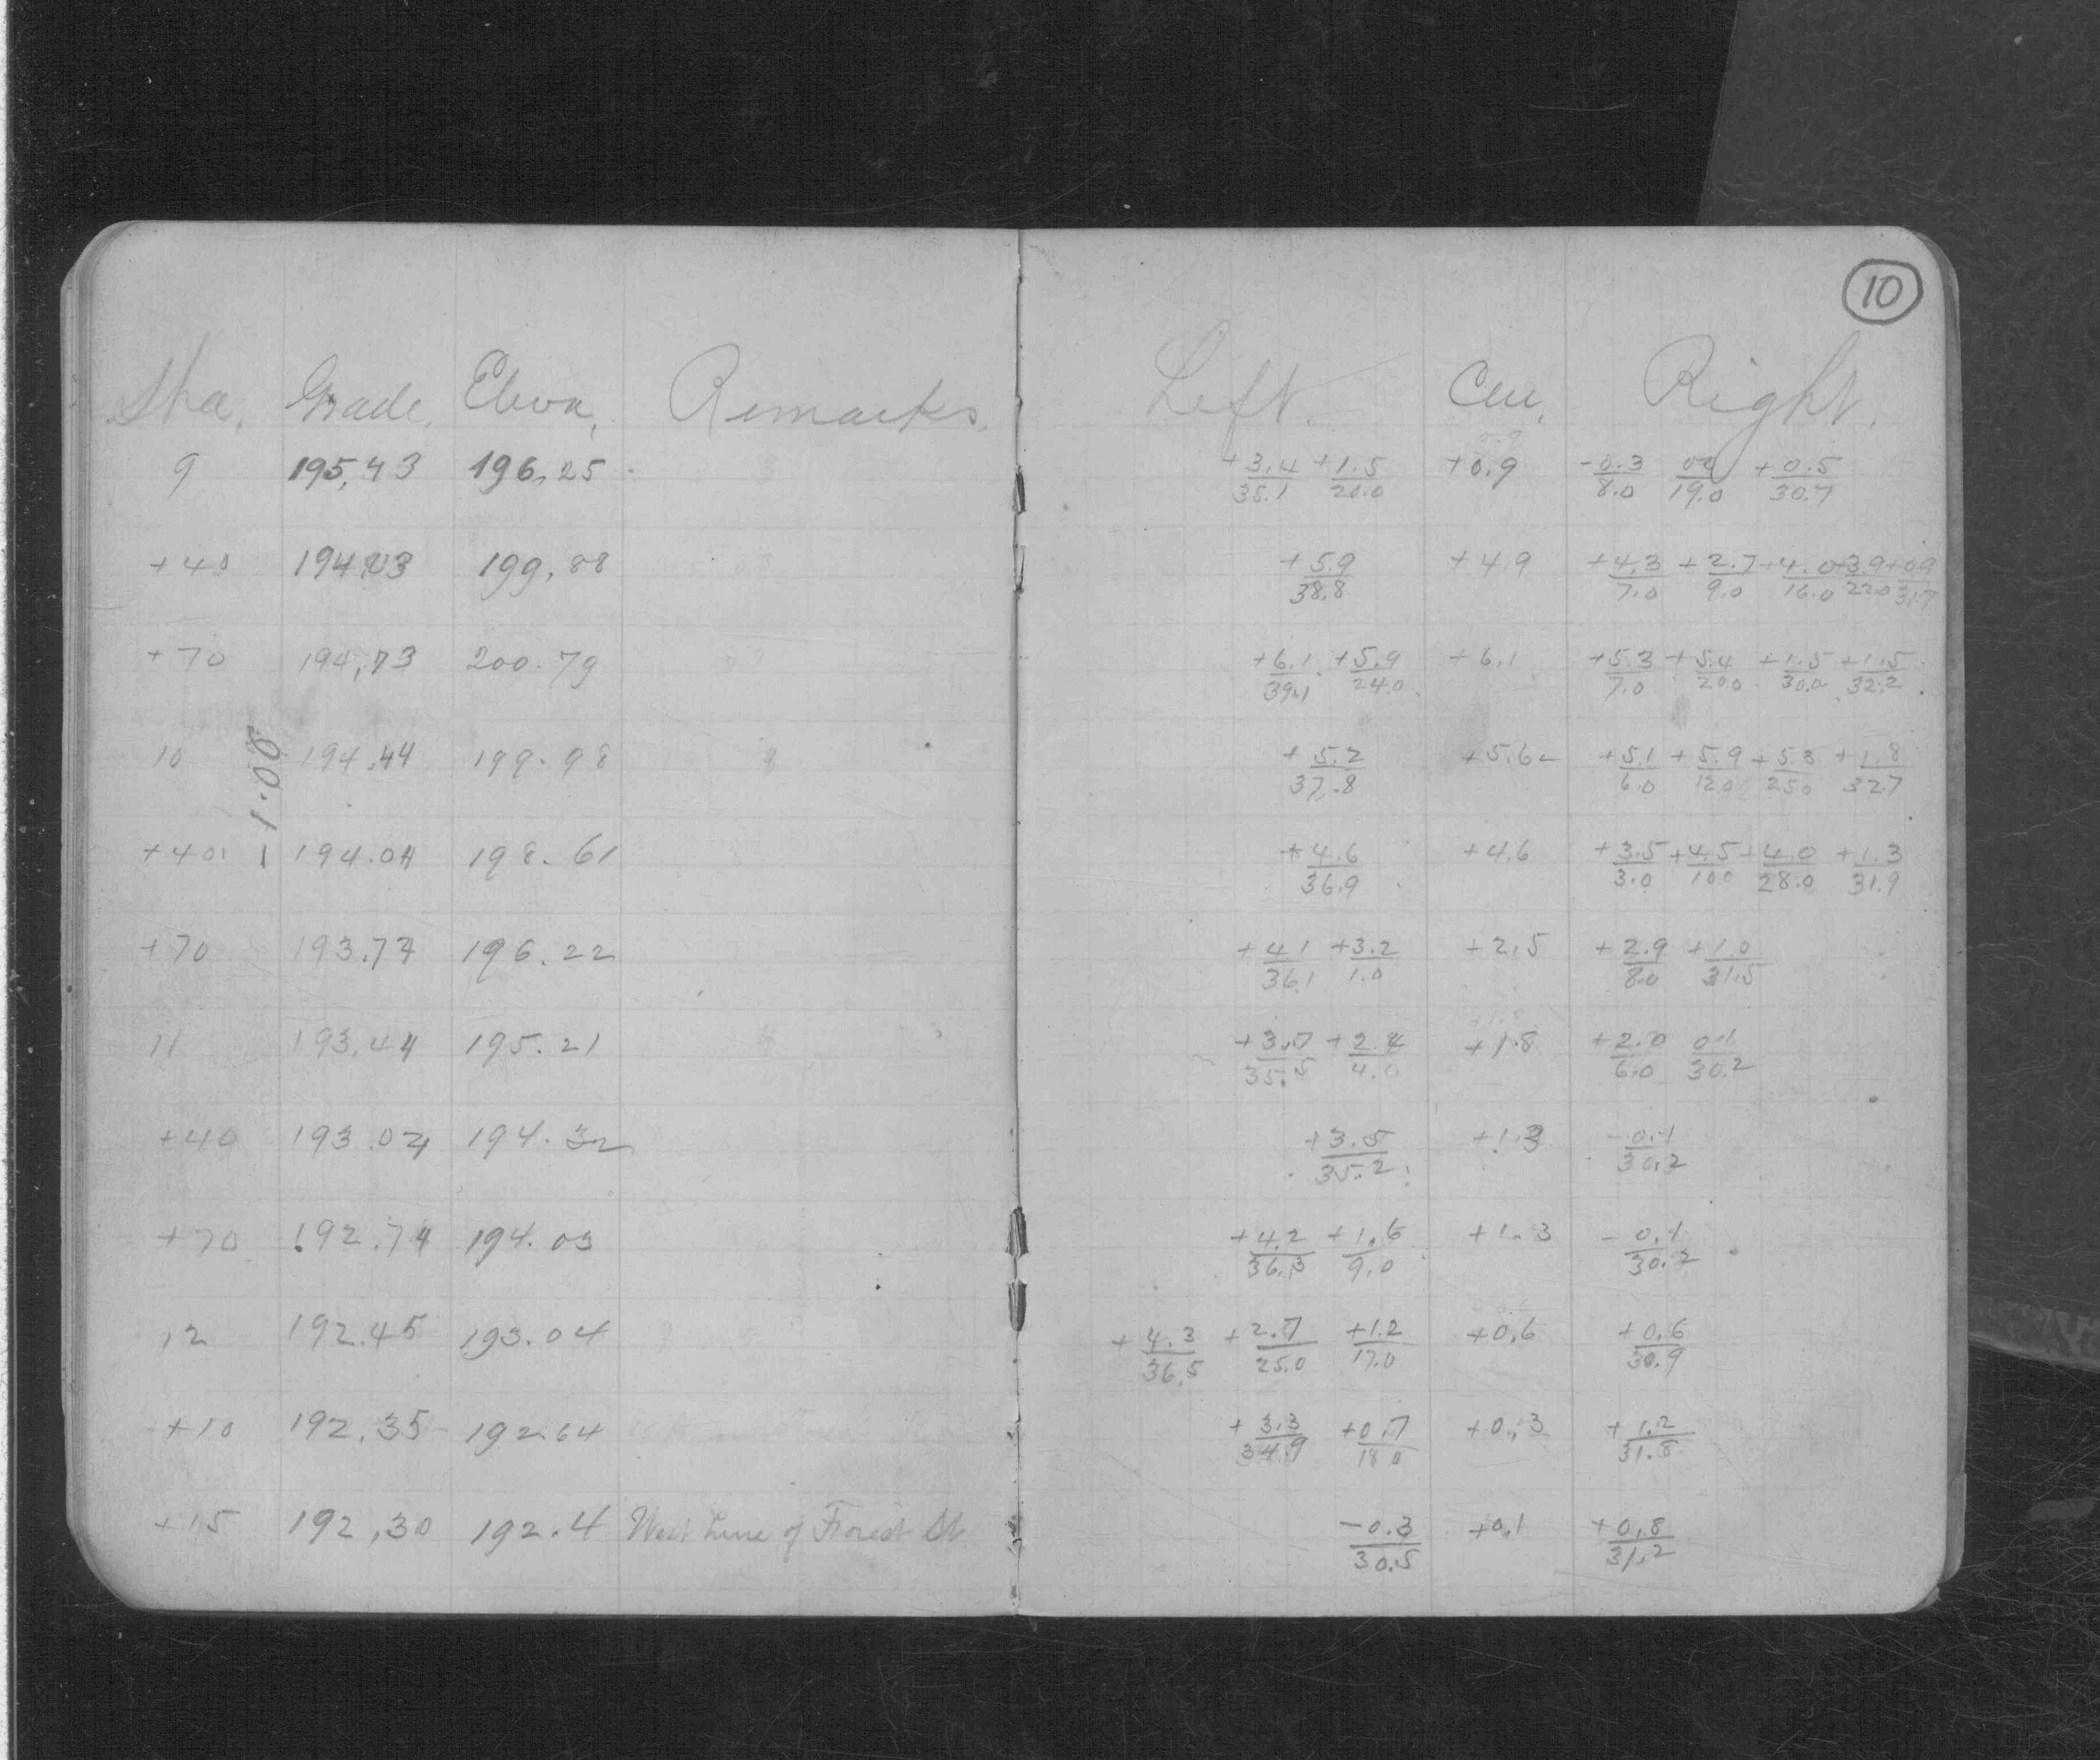 10
Sta. Grade. Eleva. Remarks. Left. Cen. Right.
9 195.43 196.25 +3.4/35.1 +1.5/20.0 +0.9 -0.3/8.0 00/19.0 +0.5/30.7
+40 199.88 +5.9/38.8 +4.9 +4.3/7.0 +2.7/9.0 +4.0/16.0 +3.9/22.0 +0.9/31.7
+70 194.73 200.79 +6.1/39.1 +5.9/24.0 +6.1 +5.3/7.0 +5.4/20.0 +1.5/30.0 +1.5/32.2
10 194.44 199.98 +5.2/37.8 +5.6 +5.1/6.0 +5.9/12.0 +5.3/25.0 +1.8/32.7
1.00
+40 194.04 198.61 +4.6/36.9 +4.6 +3.5/3.0 +4.5/10.0 +4.0/28.0 +1.3/31.9
+70 193.74 196.22 +4.1/36.1 +3.2/1.0 +2.5 +2.9/8.0 +1.0/31.5
11 193.44 195.21 +3.7/35.5 +2.4/4.0 +1.8 +2.0/6.0 0.1/30.2
+40 193.04 194.32 +3.5/35.2 +1.3 -0.1/30.2
+70 192.74 194.03 +4.2/36.3 +1.6/9.0 +1.3 -0.1/30.2
12 192.45 193.04 +4.3/36.5 +2.7/25.0 +1.2/17.0 +0.6 +0.6/30.9
+10 192.35 192.64 +3.3/34.9 +0.7/18.0 +0.3 +1.2/31.8
+15 192.30 192.4 West Line of Forest St -0.3/30.5 +0.1 +0.8/31.2